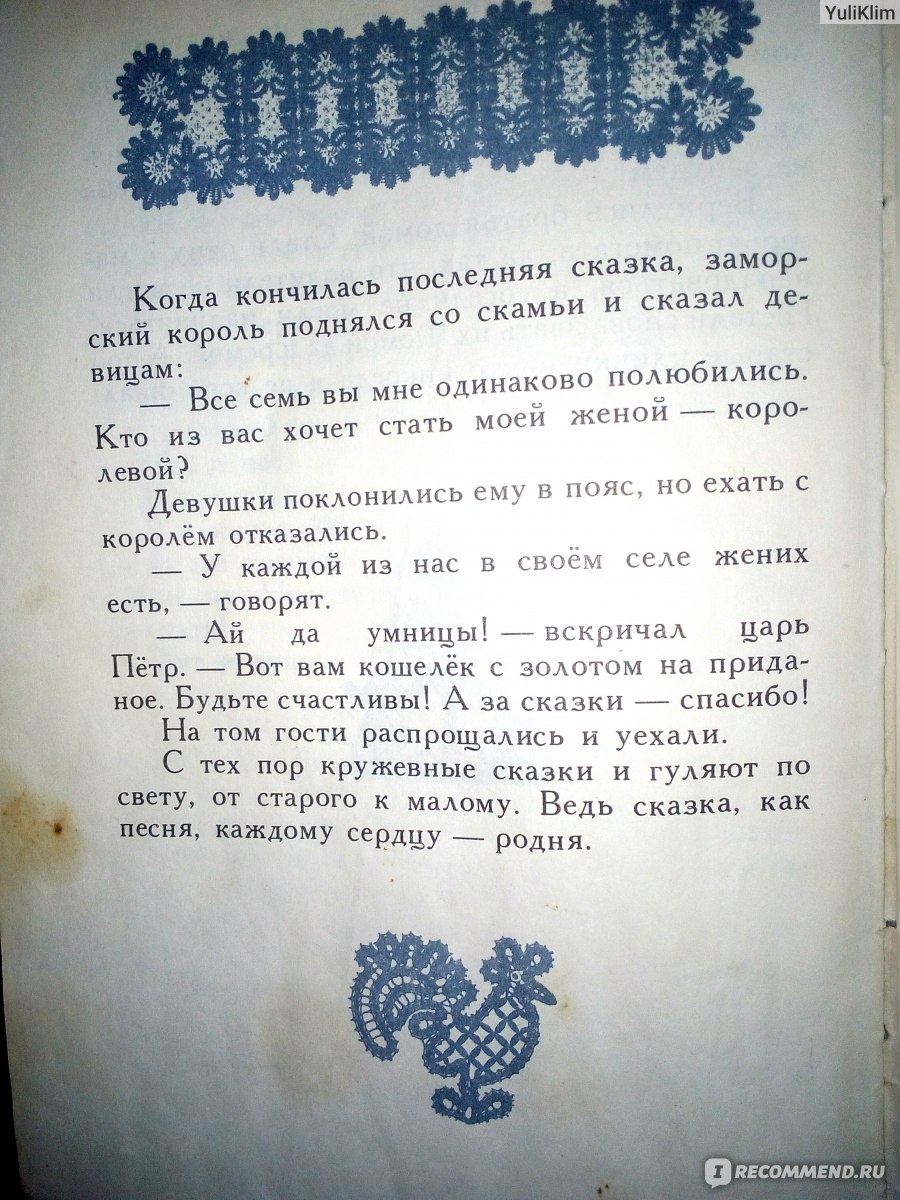 YuliKlim
Когда кончилась последняя сказка, замор-
ский король поднялся со скамьи и сказал де-
вицам:
— Все семь вы мне одинаково полюбились.
Кто из вас хочет стать моей женой — коро-
левой?
Девушки поклонились ему в пояс, но ехать с
королём отказались.
— У каждой из нас в своём селе жених
есть, — говорят.
— Ай да умницы! — вскричал царь
Пётр. — Вот вам кошелёк с золотом на прида-
ное. Будьте счастливы! А за сказки — спасибо!
На том гости распрощались и уехали.
С тех пор кружевные сказки и гуляют по
свету, от старого к малому. Ведь сказка, как
песня, каждому сердцу — родня.
IRECOMMEND.RU